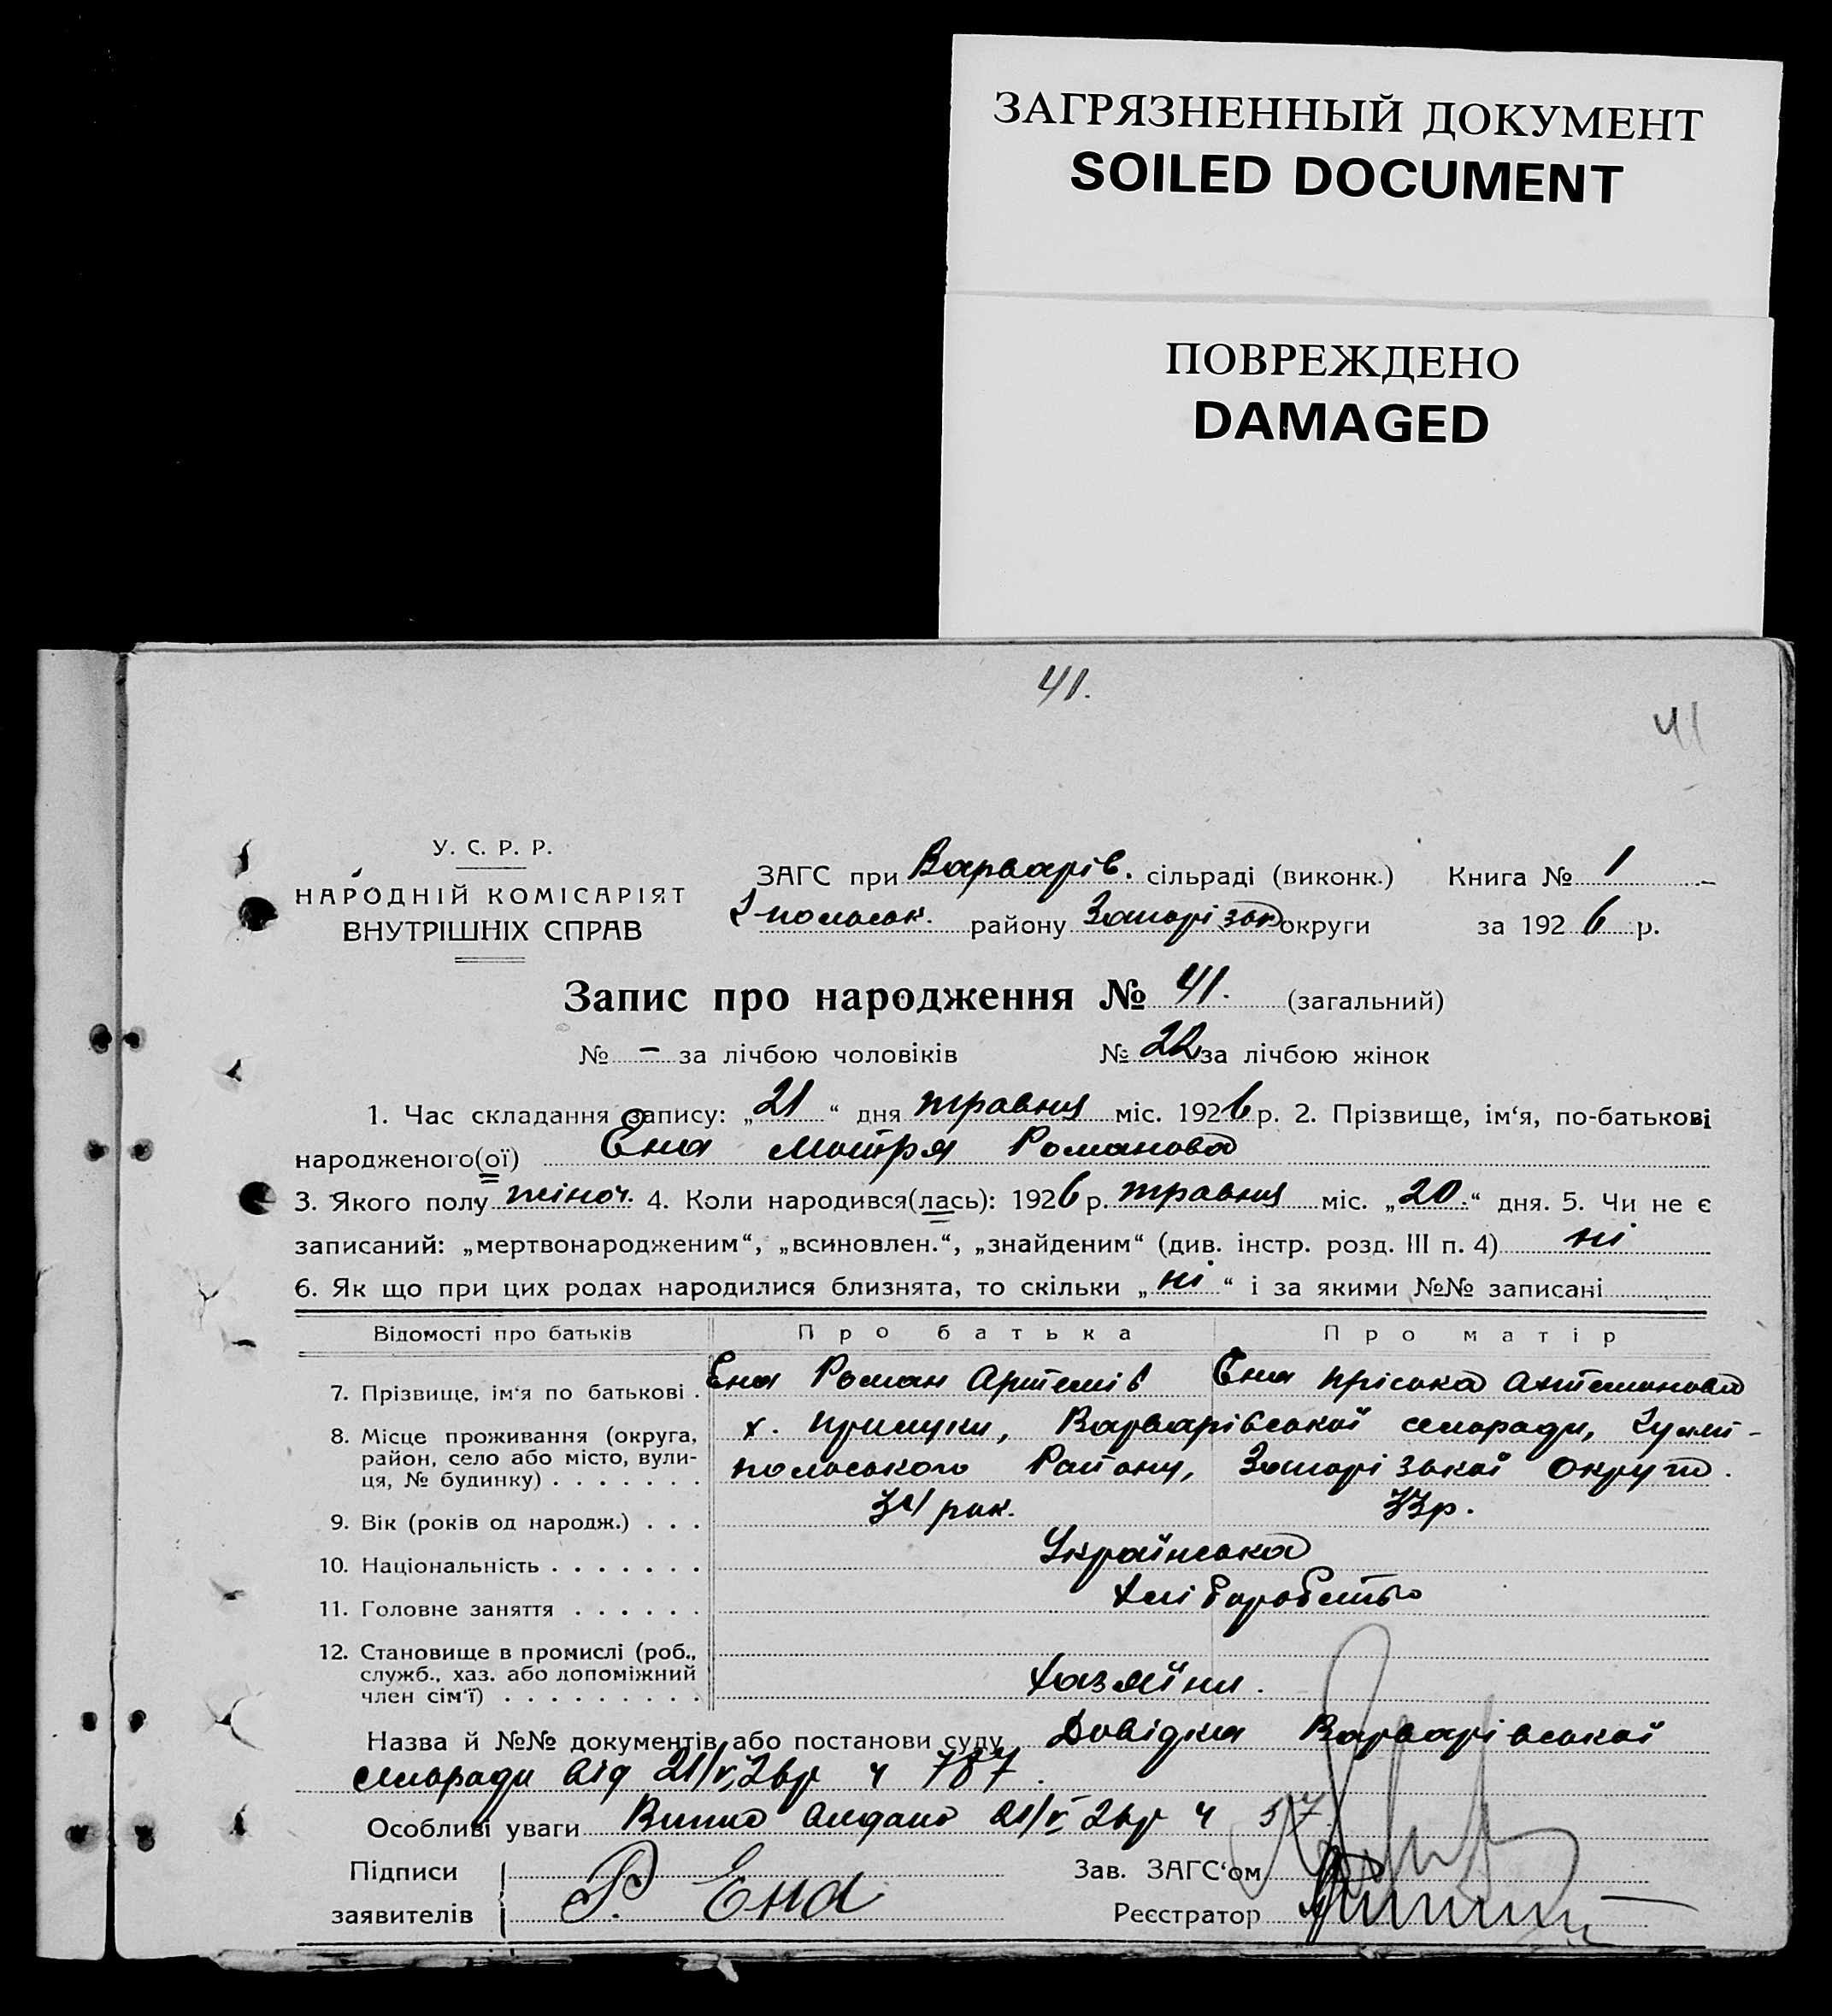 ЗАГРЯЗНЕННЫЙ ДОКУМЕНТ
SOILED DOCUMENT
ПОВРЕЖДЕНО
DAMAGED
41.
41
У. С. Р. Р.
НАРОДНІЙ КОМІСАРІЯТ
ВНУТРІШНІХ СПРАВ
ЗАГС при Варварів. сільраді (виконк.) Книга № 1
району округи за 1926 р.
Запис про народження № 41. (загальний)
№ - за лічбою чоловіків № 22 за лічбою жінок
1. Час складання запису: „21“ дня травня міс. 1926 р. 2. Прізвище, ім‘я, по-батькові
народженого(ої) Ена Мотря Романова
3. Якого полу жіноч. 4. Коли народився(лась): 1926 р. травня міс. „20.“ дня. 5. Чи не є
записаний: „мертвонародженим“, „всиновлен.“, „знайденим“ (див. інстр. розд. III п. 4) ні
6. Як що при цих родах народилися близнята, то скільки „ні“ і за якими №№ записані
Відомості про батьків Про батька Про матір
7. Прізвище, ім‘я по батькові . Ена Роман Артемів Ена Пріська Антемонова
8. Місце проживання (округа,
район, село або місто, вули-
ця, № будинку) . . . . . . .
х. Варварівської сільради, Гуляй-
польського Району, Запорізької Округи.
9. Вік (років од народж.) . . . 34 рок. 33 р.
10. Національність . . . . . . . Українська
11. Головне заняття . . . . . . Хліборобство
12. Становище в промислі (роб.,
служб., хаз. або допоміжний
член сім‘ї) . . . . . . . . . Хазяїни.
Назва й №№ документів або постанови суду Довідка Варварівської
сільради від 21/V 26 р ч 787.
Особливі уваги видано 21/V 26 р ч 57
Підписи
заявителів Р. Ена
Зав. ЗАГС‘ом
Реєстратор